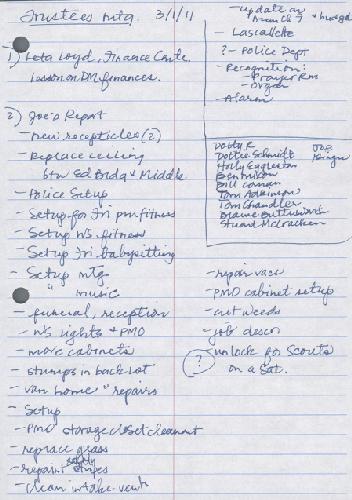 Trustees mtg. 3/1/11
1) Leta Loyd, Finance Cmte.
lesson on DM finances.
2) Joe's Report
- new recepticles (2)
- Replace ceiling
btw Ed Bldg & Middle
- Police Setup
- Setup for Fri pm. fitness
- Setup W.S. fitness
- Setup Fri. babysitting
- Setup mtg
" music
- funeral, reception
- W.S. lights & PMO
- move cabinets
- stumps in back lot
- van home " repairs
- Setup
- PMO storage closet cleanout
- replace grass
- repair safety stripes
- clean intake vent
- update on
- Lascallette
?- Police Dept
- Recognition:
- Prayer Rm
- organ
- Alarm
Doctor Schmidt
Holly Eggleston
Ben
Bill
Tom
Tom Chandler
Blaine
Stuart McCracken
- repair vacs
- PMO cabinet setup
- cut weeds
- job descr
? - unlock for Scouts
on a Sat.